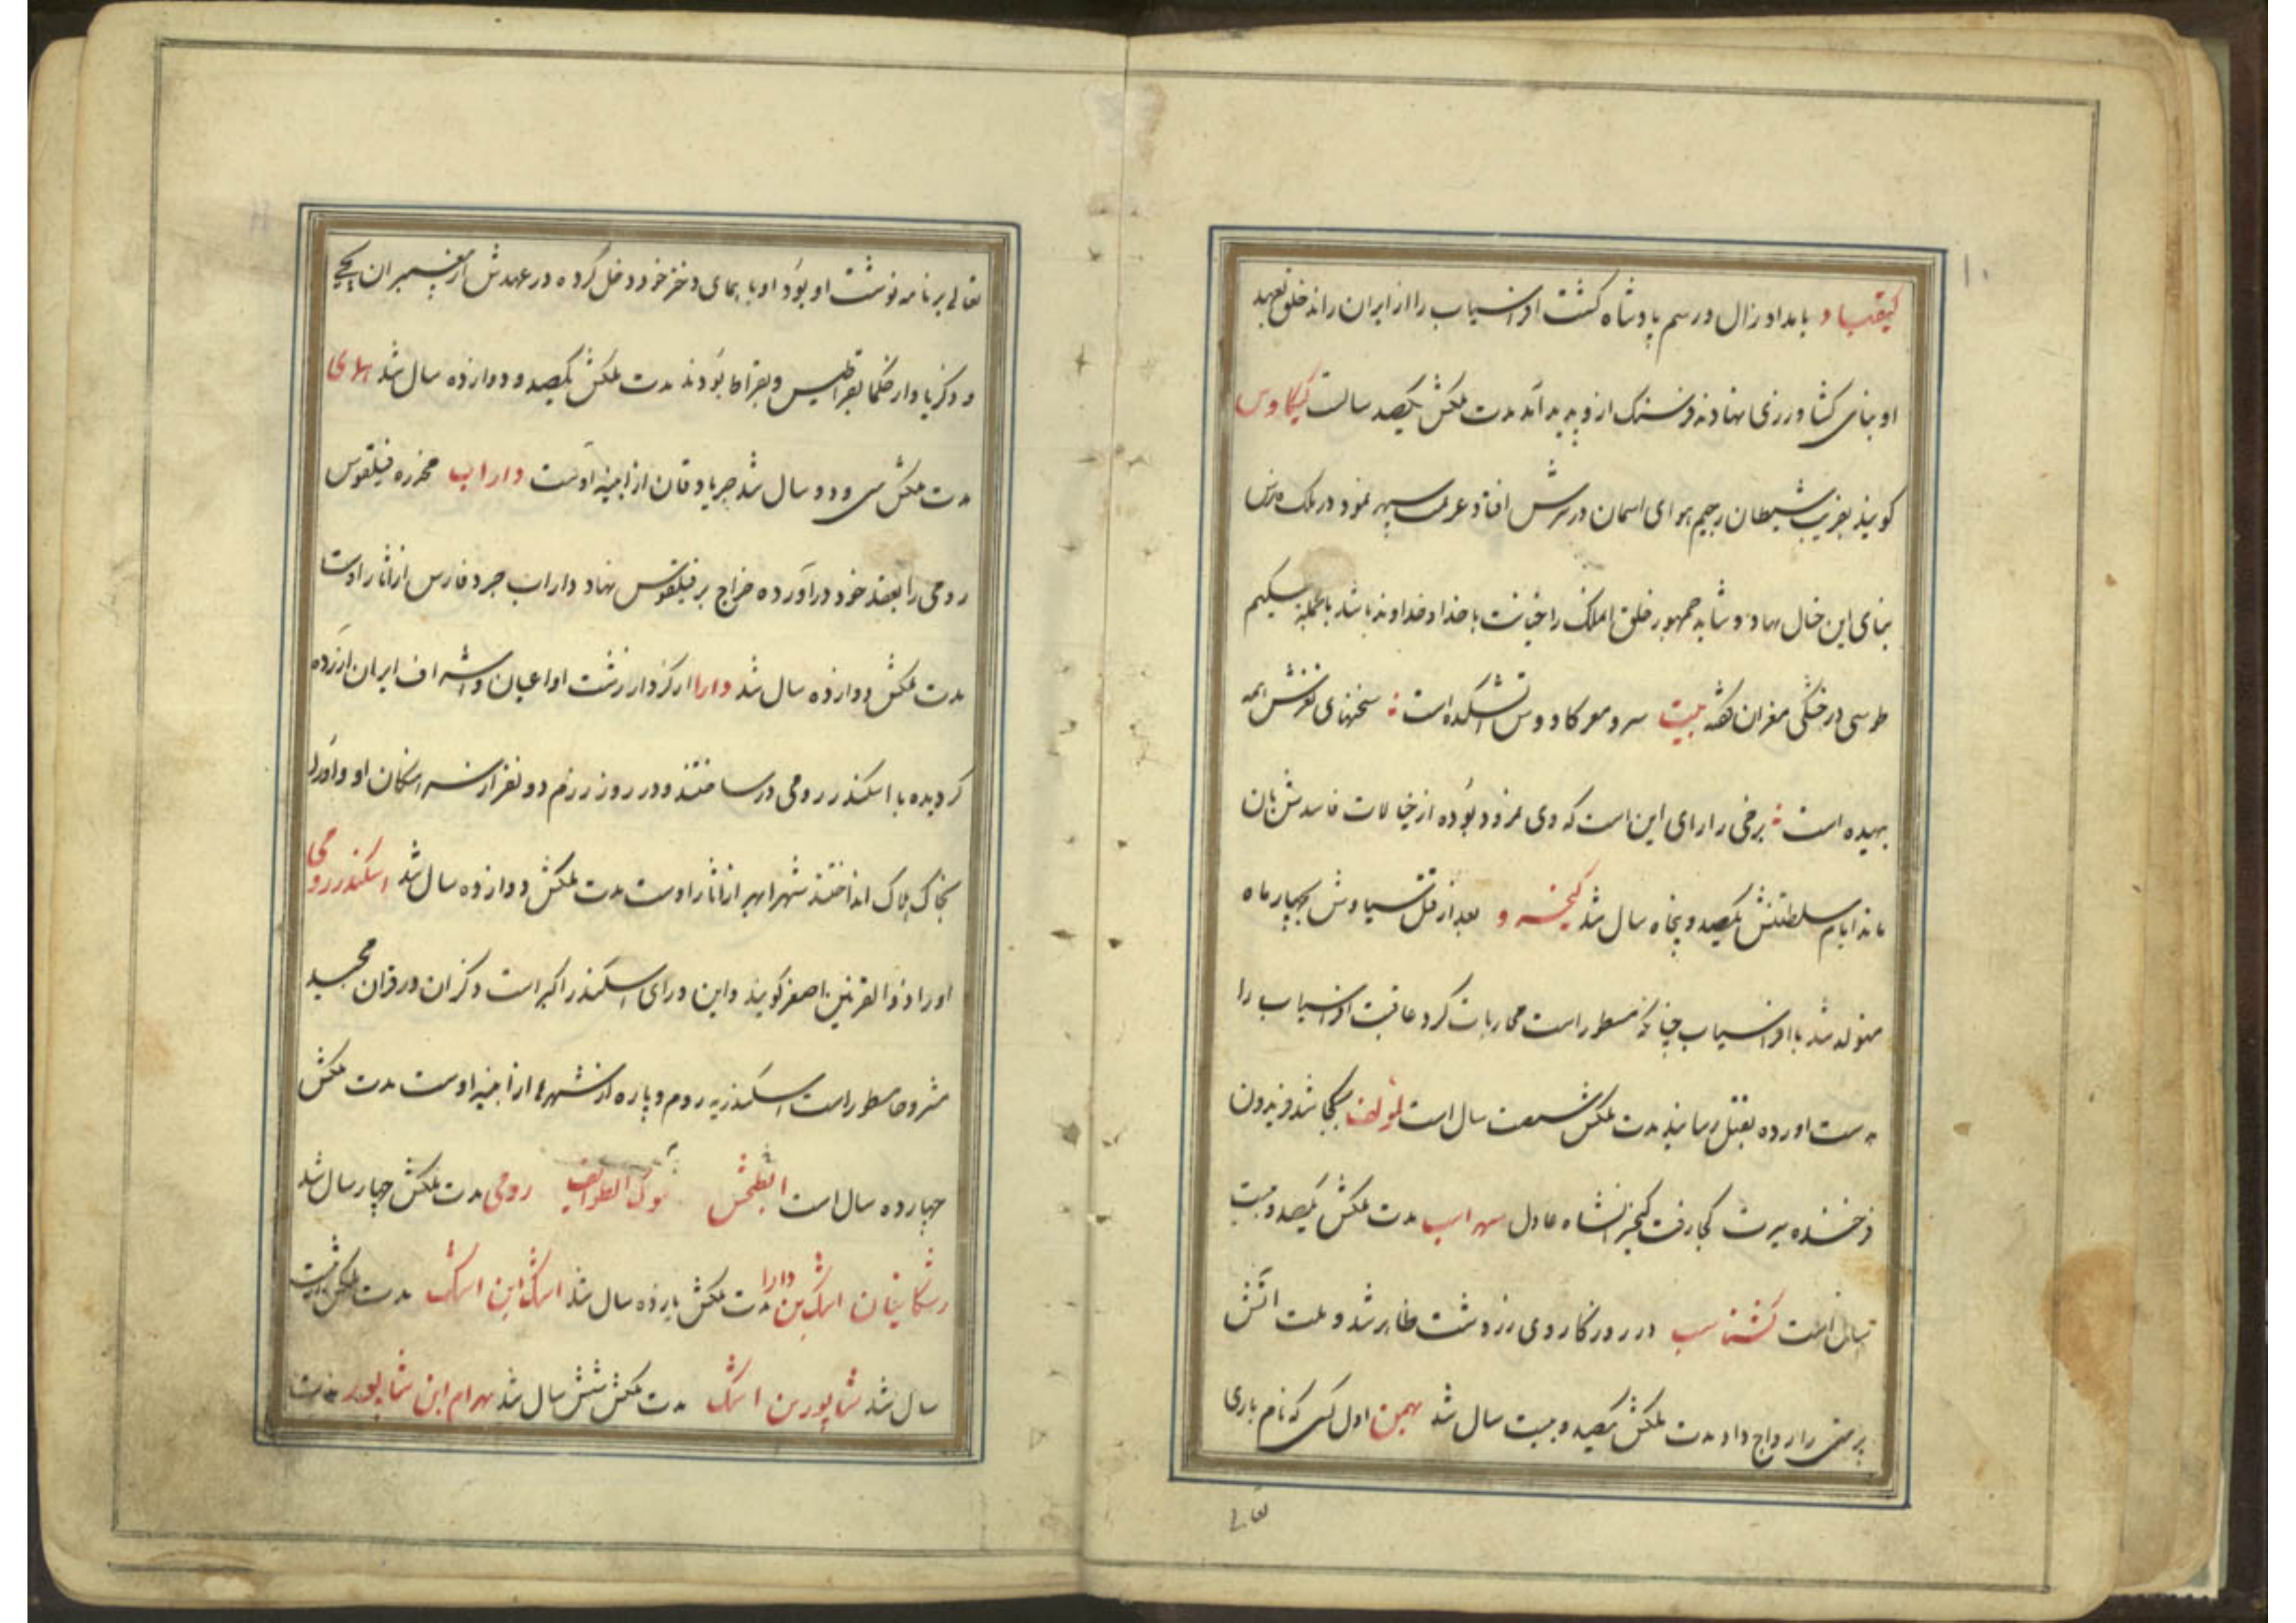 ۱۰
کیقباد بامداد زال و رستم پادشاه گشت افراسیاب را از ایران راند خلق بعهد
او بنای کشاورزی نهادند فرسنک ازو پدید آمد مدت ملکش یکصد سالست کیکاوس
کویند بفریب شیطان رجیم هوای اسمان در سرش افتاد عرصه سپهر نمود در ملک فارس
بنای این خیال نهاد و شاید جمهور خلق الملک را خیانت با خدا و خداوند باشد
طوسی در خشکی مغزان گفته بیت سر و مغز کاووس آتشکده است سخنهای نغزش همه
بیهده است برخی را رای این است که وی نمرود بوده از خیالات فاسدش بان
ماند ایام سلطنتش یکصد و پنجاه سال شد کیخسرو بعد از قتل سیاوش بچهار ماه
متولد شد با افراسیاب چنانکه مسطور است محاربات کرد عاقبت افراسیاب را
بدست اورده بقتل رسانید مدت ملکش شصت سال است لمؤلفه کجا شد فریدون
فرخنده سیرت کجا رفت کیخسرو انشاه عادل سهراسب مدت ملکش یکصد و بیست
سال است کشتاسب در روزکار وی زردشت ظاهر شد و ملت اتش
پرستی را رواج داد مدت ملکش یکصد و بیست سال شد بهمن اول کسی که نام باری
تعالی بر نامه نوشت او بود او با همای دختر خود دخل کرده در عهدش از پیغمبران یحیی
و ذکریا و از حکما بقراطیس و بقراط بودند مدت ملکش یکصد و دوازده سال شد همای
مدت ملکش سی و دو سال شد جربادقان از ابنیه اوست داراب مخدره فیلقوس
رومی را بعقد خود دراورده خراج بر فیلقوس نهاد داراب جرد فارس از اثار اوست
مدت ملکش دوازده سال شد دارا از کردار زشت او اعیان و اشراف ایران ازرده
کردیده با اسکندر رومی در ساختند و در روز رزم دو نفر از سرهنکان او و اورا
بخاک هلاک انداختند شهر ابهر از اثار اوست مدت ملکش دوازده سال شد اسکندر رومی
او را ذوالقرنین اصغر کویند و این ورای اسکندر اکبر است ذکر ان در قران مجید
مشروحا مسطور است اسکندریه روم و پاره از شهرها از ابنیه اوست مدت ملکش
چهارده سال است ابطحش ملوک الطوایف رومی مدت ملکش چهار سال شد
اشکانیان اشک بن دارا مدت ملکش یازده سال شد اشک ابن اشک مدت ملکش بیست
سال شد شاپور بن اشک مدت ملکش شش سال شد بهرام ابن شاپور مدت